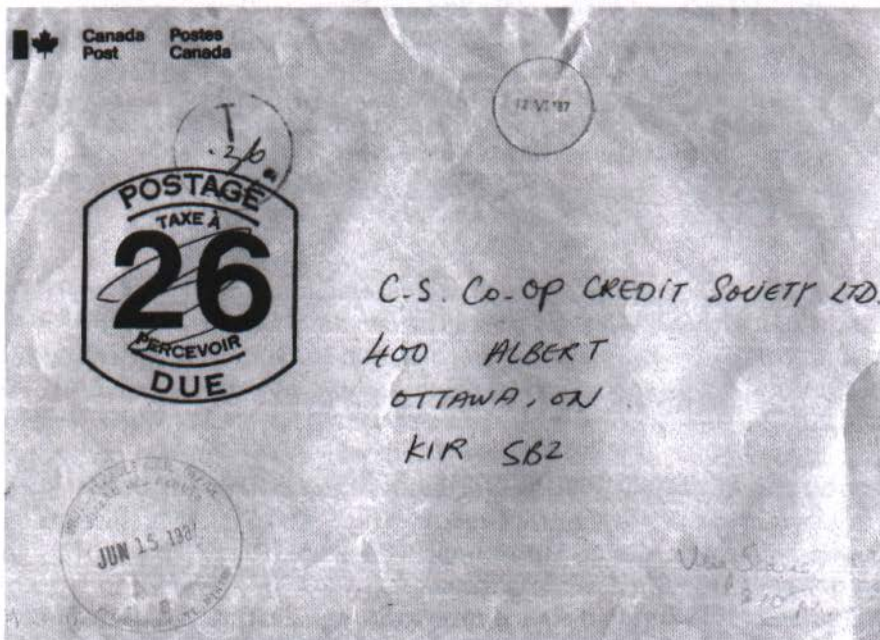 Canada Post Postes Canada
12 VI '87
T
.26
POSTAGE
TAXE À
26
PERCEVOIR
DUE
C.S. CO-OP CREDIT SOCIETY LTD.
400 ALBERT
OTTAWA, ON
K1R 5B2
JUN 15 1987
Very Scarce